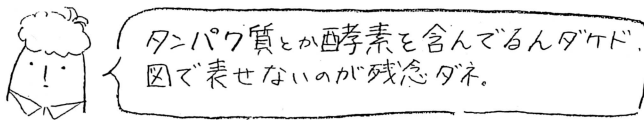 タンパク質とか酵素を含んでるんダケド、
図で表せないのが残念ダネ。